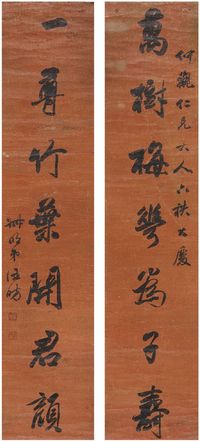 何觀仁兄大人六秩大慶
萬樹梅花為子壽
一尊竹葉開君顏